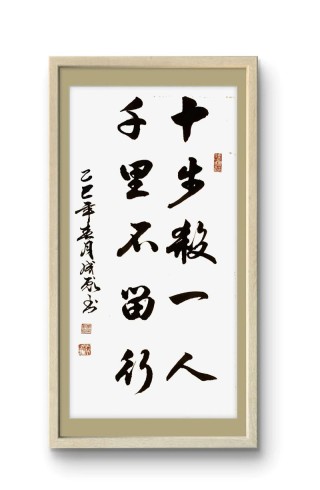 十步殺一人
千里不留行
乙巳年春月书